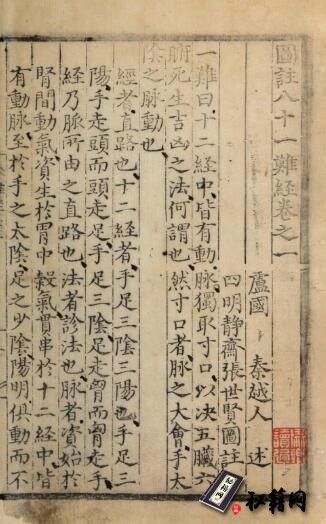 圖註八十一難經卷之一
盧國 秦越人 述
四明靜齋張世賢圖註
一難曰十二經中皆有動脉獨取寸口以决五臟六
腑死生吉凶之法何謂也 然寸口者脉之大會手太
陰之脉動也
經者直路也十二經者手足三陰三陽也手三
陽手走頭而頭走足手三陰足走胷而胷走手
經乃脉所由之直路也法者診法也脉者資始於
腎間動氣資生於胃中穀氣貫串於十二經中皆
有動脉至於手之太陰足之少陰陽明俱動而不
秘籍网